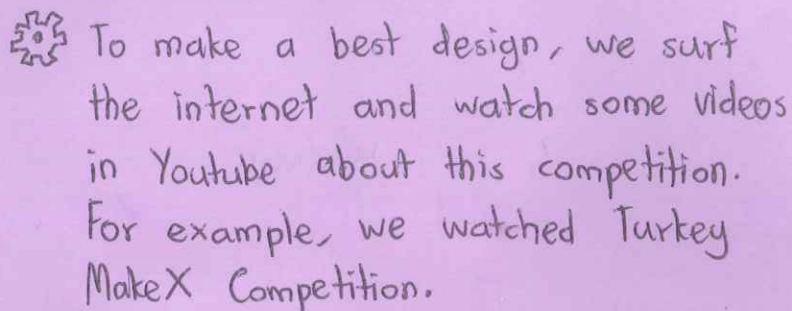 To make a best design, we surf
the internet and watch some videos
in Youtube about this competition.
For example, we watched Turkey
MakeX Competition.